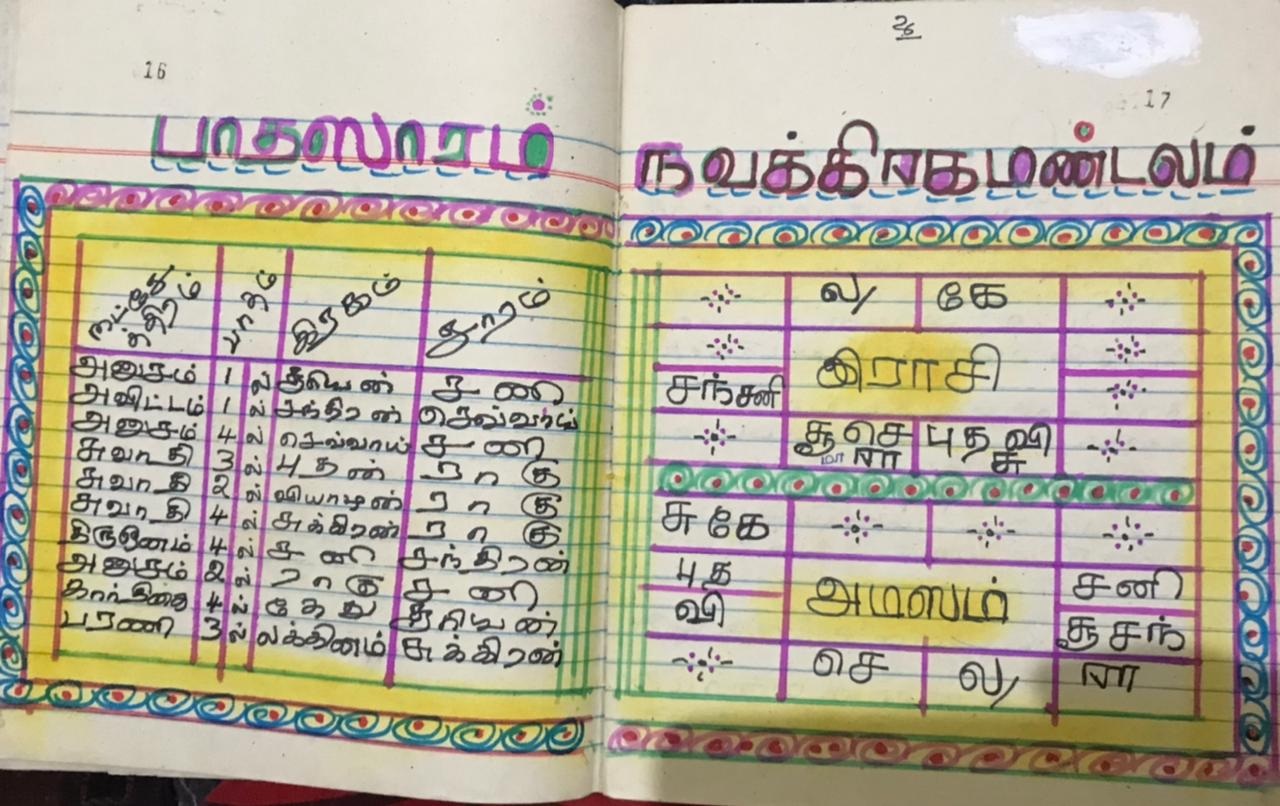 16
பாதஸாரம்
நட்சத்திரம் பாதம் கிரகம் சாரம்
அனுசம் 1 ல் சூரியன் சனி
அவிட்டம் 1 ல் சந்திரன் செவ்வாய்
அனுசம் 4 ல் செவ்வாய் சனி
சுவாதி 3 ல் புதன் ராகு
சுவாதி 2 ல் வியாழன் ராகு
சுவாதி 4 ல் சுக்கிரன் ராகு
திருவோணம் 4 ல் சனி சந்திரன்
அனுசம் 2 ல் ராகு சனி
கார்த்திகை 4 ல் கேது சூரியன்
பரணி 3 ல் லக்கினம் சுக்கிரன்
26
17
நவக்கிரகமண்டலம்
ல/ கே
இராசி
சந்சனி
சூ செ புத வி
மா ரா சு
சு கே
புத சனி
வி அம்ஸம்
சூ சந்
செ ல/ ரா